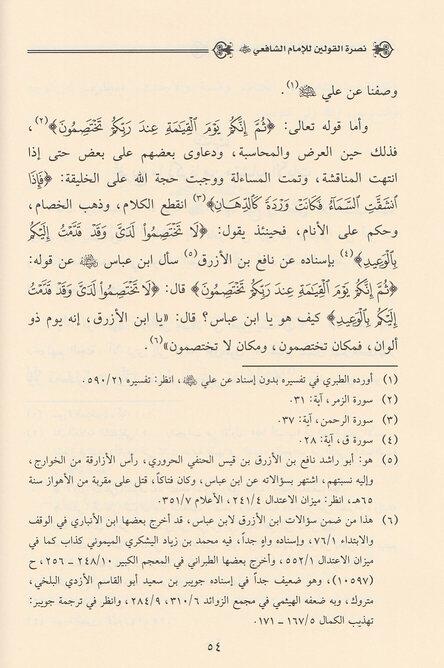 نصرة القولين للإمام الشافعي ﷺ
وصفنا عن علي ﷺ(١).
وأما قوله تعالى: ﴿ثُمَّ إِنَّكُمْ يَوْمَ ٱلْقِيَٰمَةِ عِندَ رَبِّكُمْ تَخْتَصِمُونَ﴾(٢)،
فذلك حين العرض والمحاسبة، ودعاوى بعضهم على بعض حتى إذا
انتهت المناقشة، وتمت المساءلة ووجبت حجة الله على الخليقة: ﴿فَإِذَا
ٱنشَقَّتِ ٱلسَّمَآءُ فَكَانَتْ وَرْدَةً كَٱلدِّهَانِ﴾(٣) انقطع الكلام، وذهب الخصام،
وحكم على الأنام، فحينئذ يقول: ﴿لَا تَخْتَصِمُوا۟ لَدَىَّ وَقَدْ قَدَّمْتُ إِلَيْكُم
بِٱلْوَعِيدِ﴾(٤) بإسناده عن نافع بن الأزرق(٥) سأل ابن عباس ﷺ عن قوله:
﴿ثُمَّ إِنَّكُمْ يَوْمَ ٱلْقِيَٰمَةِ عِندَ رَبِّكُمْ تَخْتَصِمُونَ﴾ قال: ﴿لَا تَخْتَصِمُوا۟ لَدَىَّ وَقَدْ قَدَّمْتُ
إِلَيْكُم بِٱلْوَعِيدِ﴾ كيف هو يا ابن عباس؟ قال: «يا ابن الأزرق، إنه يوم ذو
ألوان، فمكان تختصمون، ومكان لا تختصمون»(٦).
(١) أورده الطبري في تفسيره بدون إسناد عن علي ﷺ، انظر: تفسيره ٥٩٠/٢١.
(٢) سورة الزمر، آية: ٣١.
(٣) سورة الرحمن، آية: ٣٧.
(٤) سورة ق، آية: ٢٨.
(٥) هو: أبو راشد نافع بن الأزرق بن قيس الحنفي الحروري، رأس الأزارقة من الخوارج،
وإليه نسبتهم، اشتهر بسؤالاته عن ابن عباس، وكان فتاكاً، قتل على مقربة من الأهواز سنة
٦٥هـ، انظر: ميزان الاعتدال ٢٤١/٤، الأعلام ٣٥١/٧.
(٦) هذا من ضمن سؤالات ابن الأزرق لابن عباس، قد أخرج بعضها ابن الأنباري في الوقف
والابتداء ٧٦/١، وإسناده واهٍ جداً، فيه محمد بن زياد اليشكري الميموني كذاب كما في
ميزان الاعتدال ٥٥٢/١، وأخرج بعضها الطبراني في المعجم الكبير ٢٤٨/١٠ ــ ٢٥٦، ح
(١٠٥٩٧)، وهو ضعيف جداً في إسناده جويبر بن سعيد أبو القاسم الأزدي البلخي،
متروك، وبه ضعفه الهيثمي في مجمع الزوائد ٣١٠/٦، ٢٨٤/٩، وانظر في ترجمة جويبر:
تهذيب الكمال ١٦٧/٥ ــ ١٧١.
٥٤